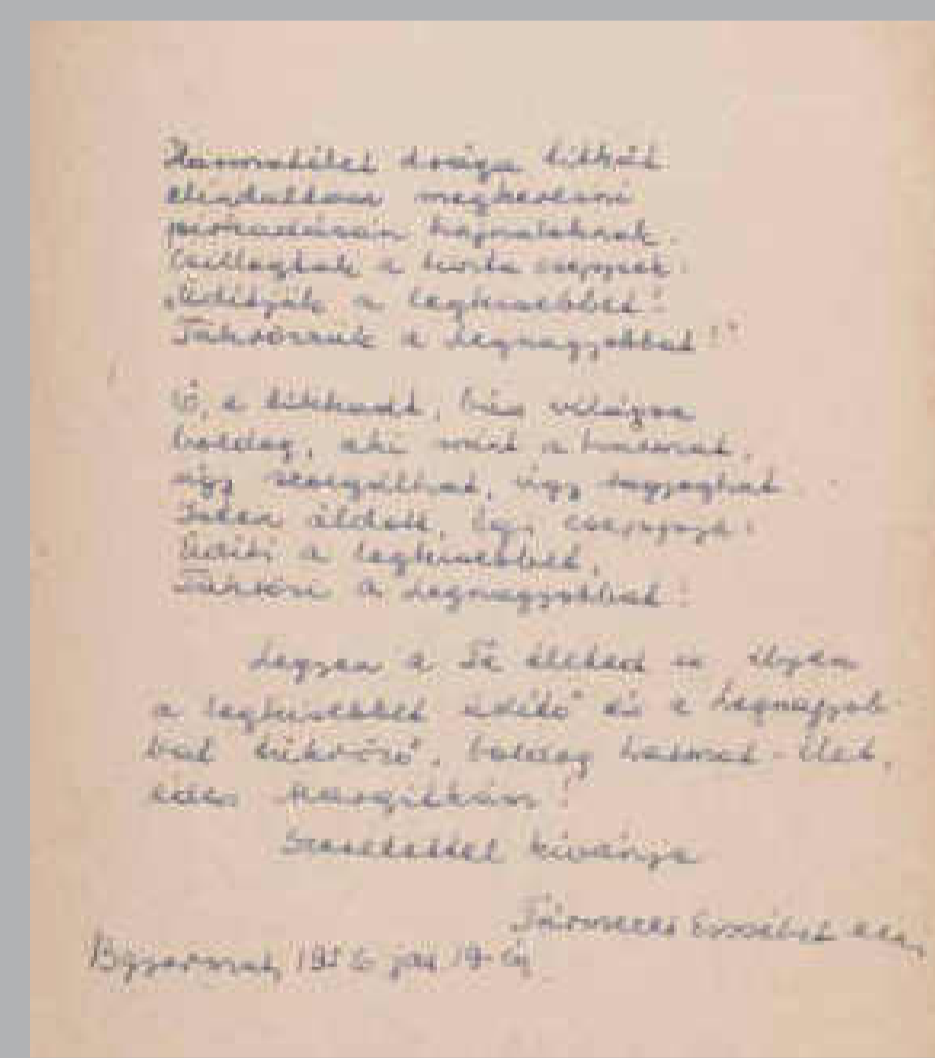 Harmatélet drága titkát
elindultam megkeresni
pirkadásán hajnaloknak.
Csillogtak a tiszta cseppek:
„Üdítjük a legkisebbet!
Tükrözzük a Legnagyobbat!"
Ó, a tikkadt, bús világon
boldog, aki mint a harmat,
úgy szolgálhat, úgy ragyoghat.
Isten áldott, égi cseppje:
Üdíti a legkisebbet,
Tükrözi a Legnagyobbat!
Legyen a Te életed is ilyen
a legkisebbet üdítő és a Legnagyob-
bat tükröző, boldog harmat-élet,
édes Margitkám!
Szeretettel kívánja
Túrmezei Erzsébet
Bgyarmat, 1956 jan 19-én